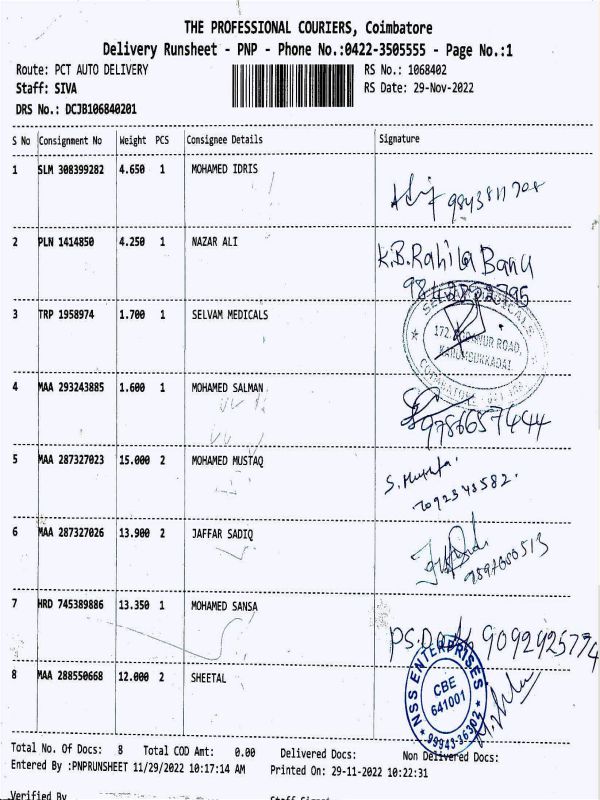 THE PROFESSIONAL COURIERS, Coimbatore
Delivery Runsheet - PNP - Phone No.:0422-3505555 - Page No.:1
Route: PCT AUTO DELIVERY RS No.: 1068402
Staff: SIVA RS Date: 29-Nov-2022
DRS No.: DCJB106840201
S No Consignment No Weight PCS Consignee Details Signature
1 SLM 308399282 4.650 1 MOHAMED IDRIS
2 PLN 1414850 4.250 1 NAZAR ALI K.B.Rahila Banu
3 TRP 1958974 1.700 1 SELVAM MEDICALS
4 MAA 293243885 1.600 1 MOHAMED SALMAN
9786657444
5 MAA 287327023 15.000 2 MOHAMED MUSTAQ
7092343582.
6 MAA 287327026 13.900 2 JAFFAR SADIQ
7 HRD 745389886 13.350 1 MOHAMED SANSA
9092925774
NSS ENTERPRISES
8 MAA 288550668 12.000 2 SHEETAL
CBE
641001
99943-36302
Total No. Of Docs: 8 Total COD Amt: 0.00 Delivered Docs: Non Delivered Docs:
Entered By :PNPRUNSHEET 11/29/2022 10:17:14 AM Printed On: 29-11-2022 10:22:31
Verified By